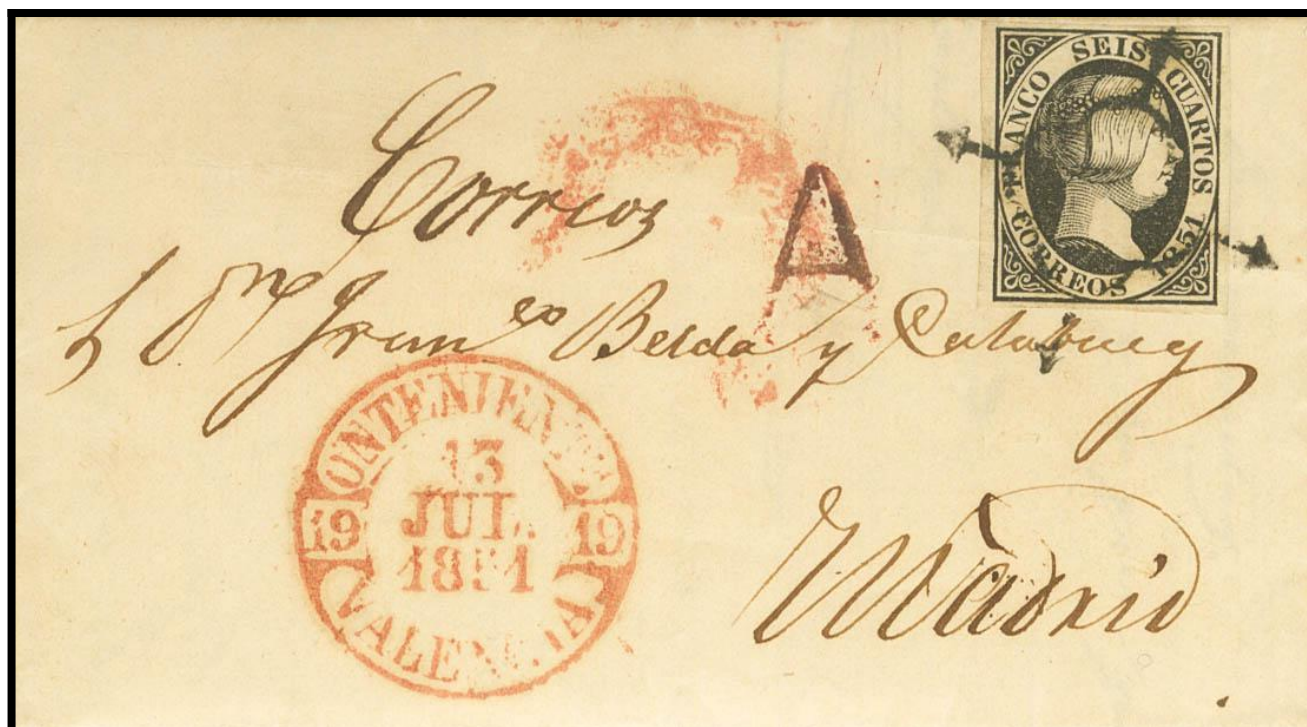 FRANCO SEIS CUARTOS
CORREOS 1851
Correos
A
Dn Franco Belda y
ONTENIENTE
13
JUL.
1851
19 19
VALENCIA
Madrid